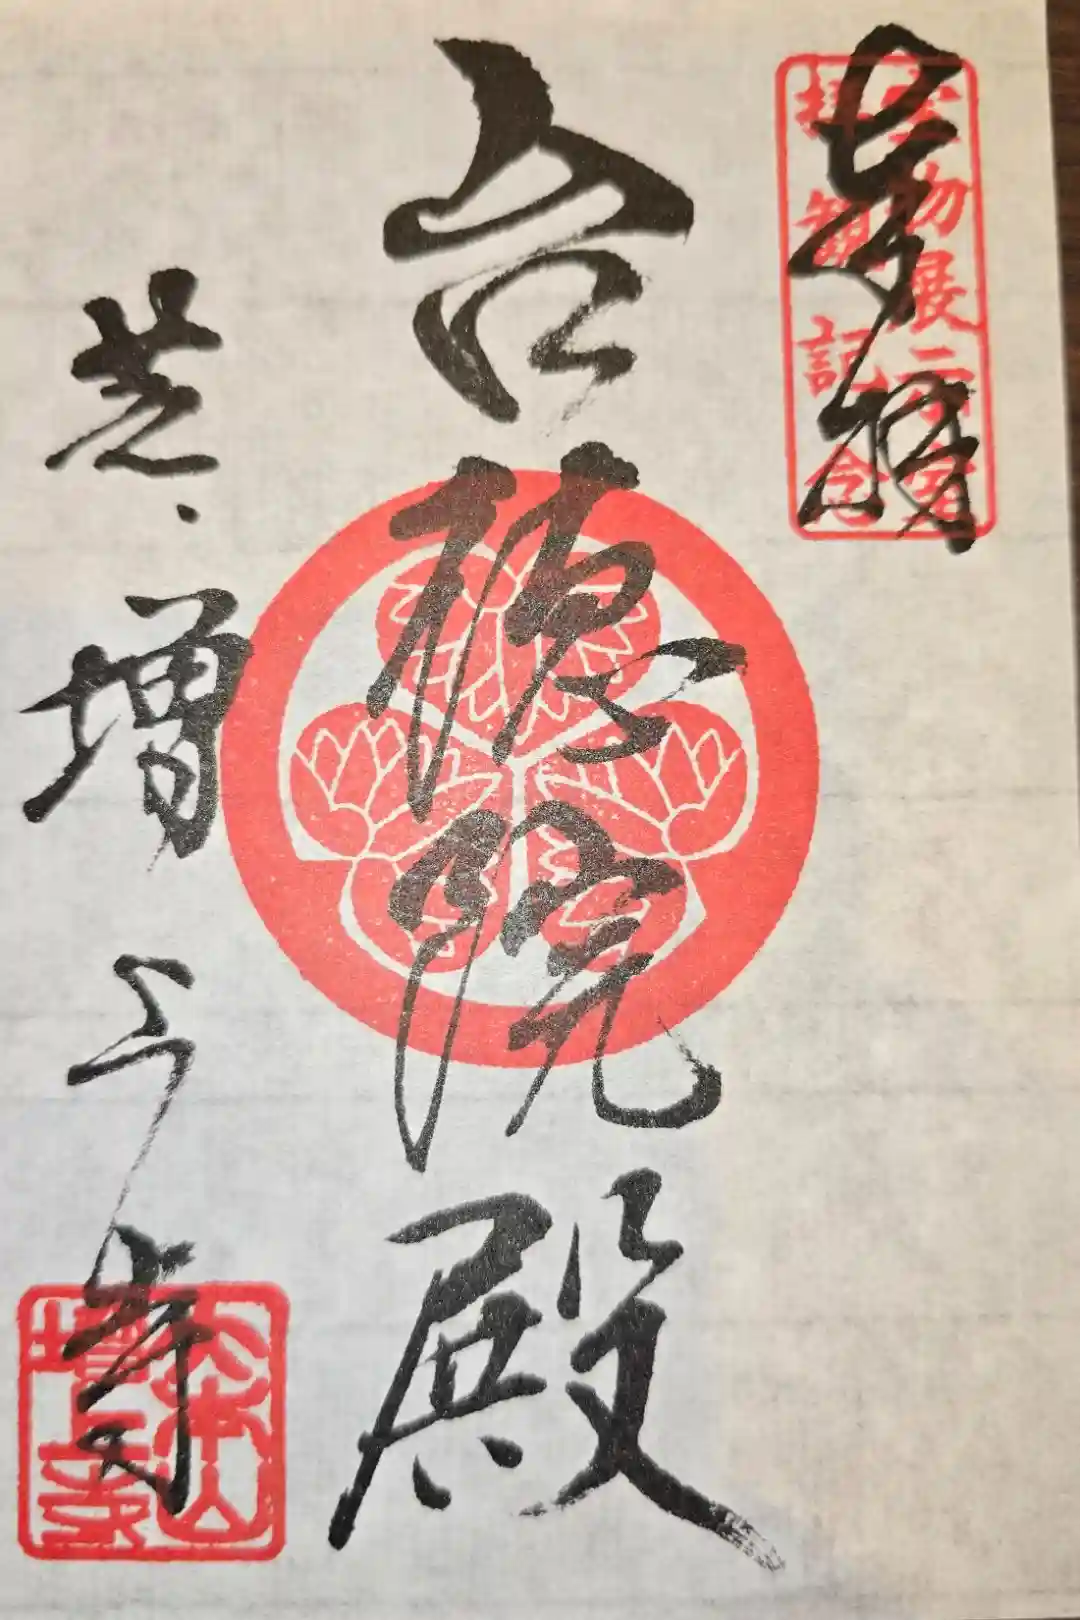 奉拝
宝物展示室
拝観記念
台徳院殿
芝・増上寺
大本山
増上寺